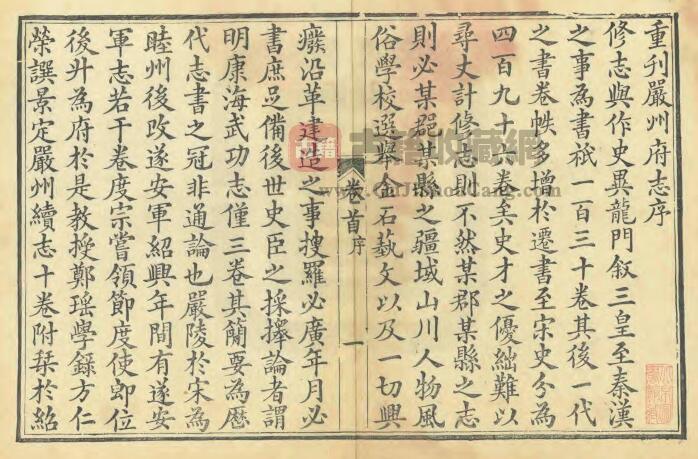 重刊嚴州府志序
修志與作史異龍門敘三皇至秦漢
之事為書祇一百三十卷其後一代
之書卷帙多增於遷書至宋史分為
四百九十六卷矣史才之優絀難以
尋丈計修志則不然某郡某縣之志
則必某郡某縣之疆域山川人物風
俗學校選舉金石藝文以及一切興
卷首 序
一
癈沿革建造之事搜羅必廣年月必
書庶足備後世史臣之採擇論者謂
明康海武功志僅三卷其簡要為歷
代志書之冠非通論也嚴陵於宋為
睦州後改遂安軍紹興年間有遂安
軍志若干卷度宗嘗領節度使卽位
後升為府於是教授鄭瑤學錄方仁
榮譔景定嚴州續志十卷附栞於紹
古籍收藏網